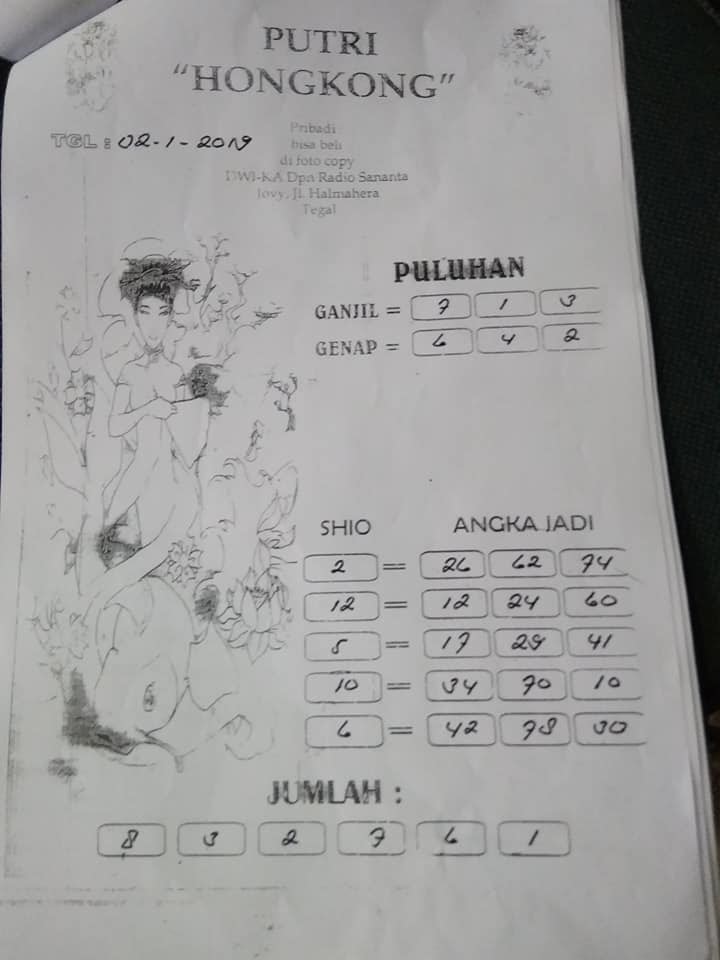 PUTRI
“HONGKONG”
TGL : 02-1-2019
Pribadi
bisa beli
di foto copy
DWI-KA Dpn Radio Sananta
Jovy, Jl. Halmahera
Tegal
PULUHAN
GANJIL = 7 1 3
GENAP = 6 4 2
SHIO ANGKA JADI
2 = 26 62 74
12 = 12 24 60
5 = 17 29 41
10 = 34 70 10
6 = 42 78 30
JUMLAH :
8 3 2 7 6 1